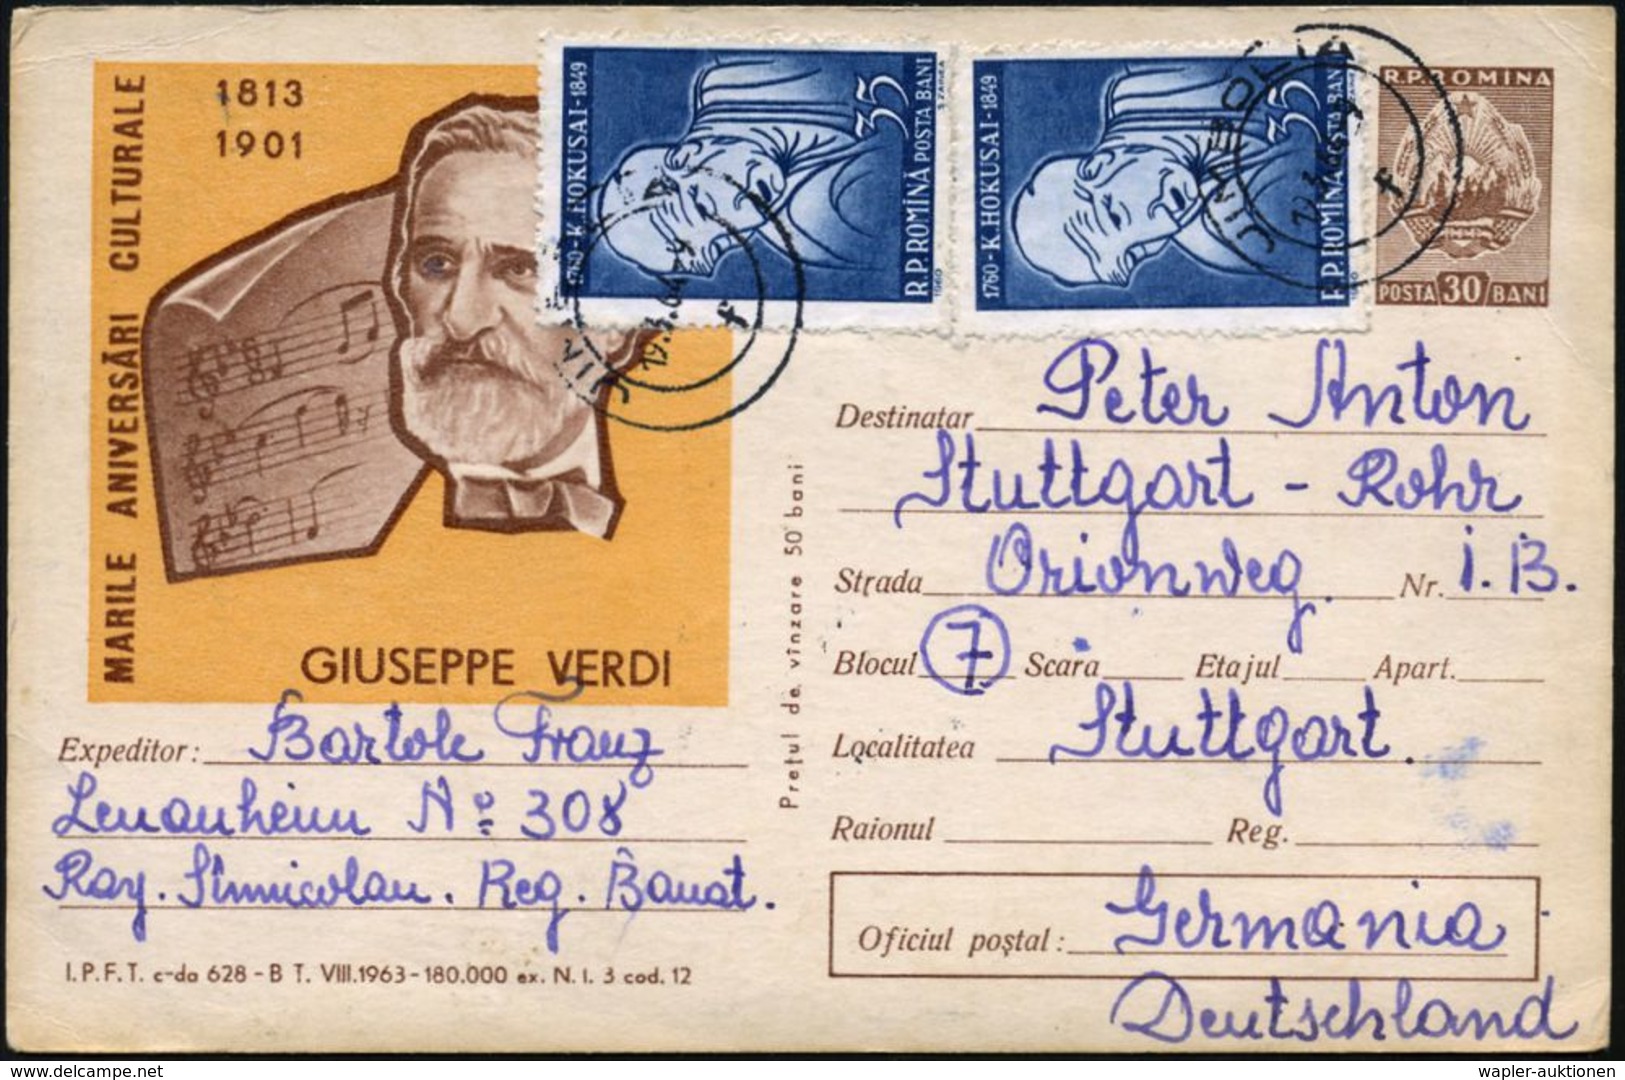 MARILE ANIVERSĂRI CULTURALE
1813
1901
GIUSEPPE VERDI
1760-K.HOKUSAI-1849
35
R.P.ROMÎNĂ POSTA BANI
1960
1760-K.HOKUSAI-1849
35
R.P.ROMÎNĂ POSTA BANI
1960
JIMBOLIA
f
R.P.ROMINA
POSTA 30 BANI
Destinatar Peter Anton
Stuttgart - Rohr
Strada Orionweg. Nr. 1. B.
Blocul 7 Scara Etajul Apart.
Localitatea Stuttgart.
Raionul Reg.
Oficiul poștal: Germania
Deutschland
Prețul de vînzare 50 bani
Expeditor: Bartole Franz
Lenauheim No 308
Ray. Sînnicolau. Reg. Banat.
I.P.F.T. c-da 628 - B T. VIII.1963-180.000 ex. N. I. 3 cod. 12
delcampe.net
wapler-auktionen